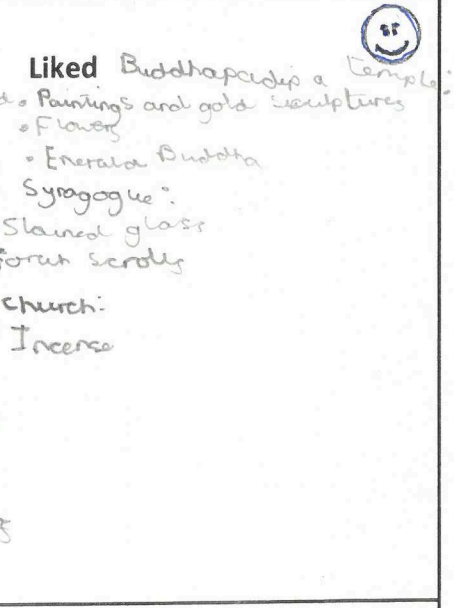 Liked Buddhapadipa temple:
• Paintings and gold sculptures
• Flowers
• Emerald Buddha
Synagogue:
Stained glass
Torah scrolls
Church:
Incense